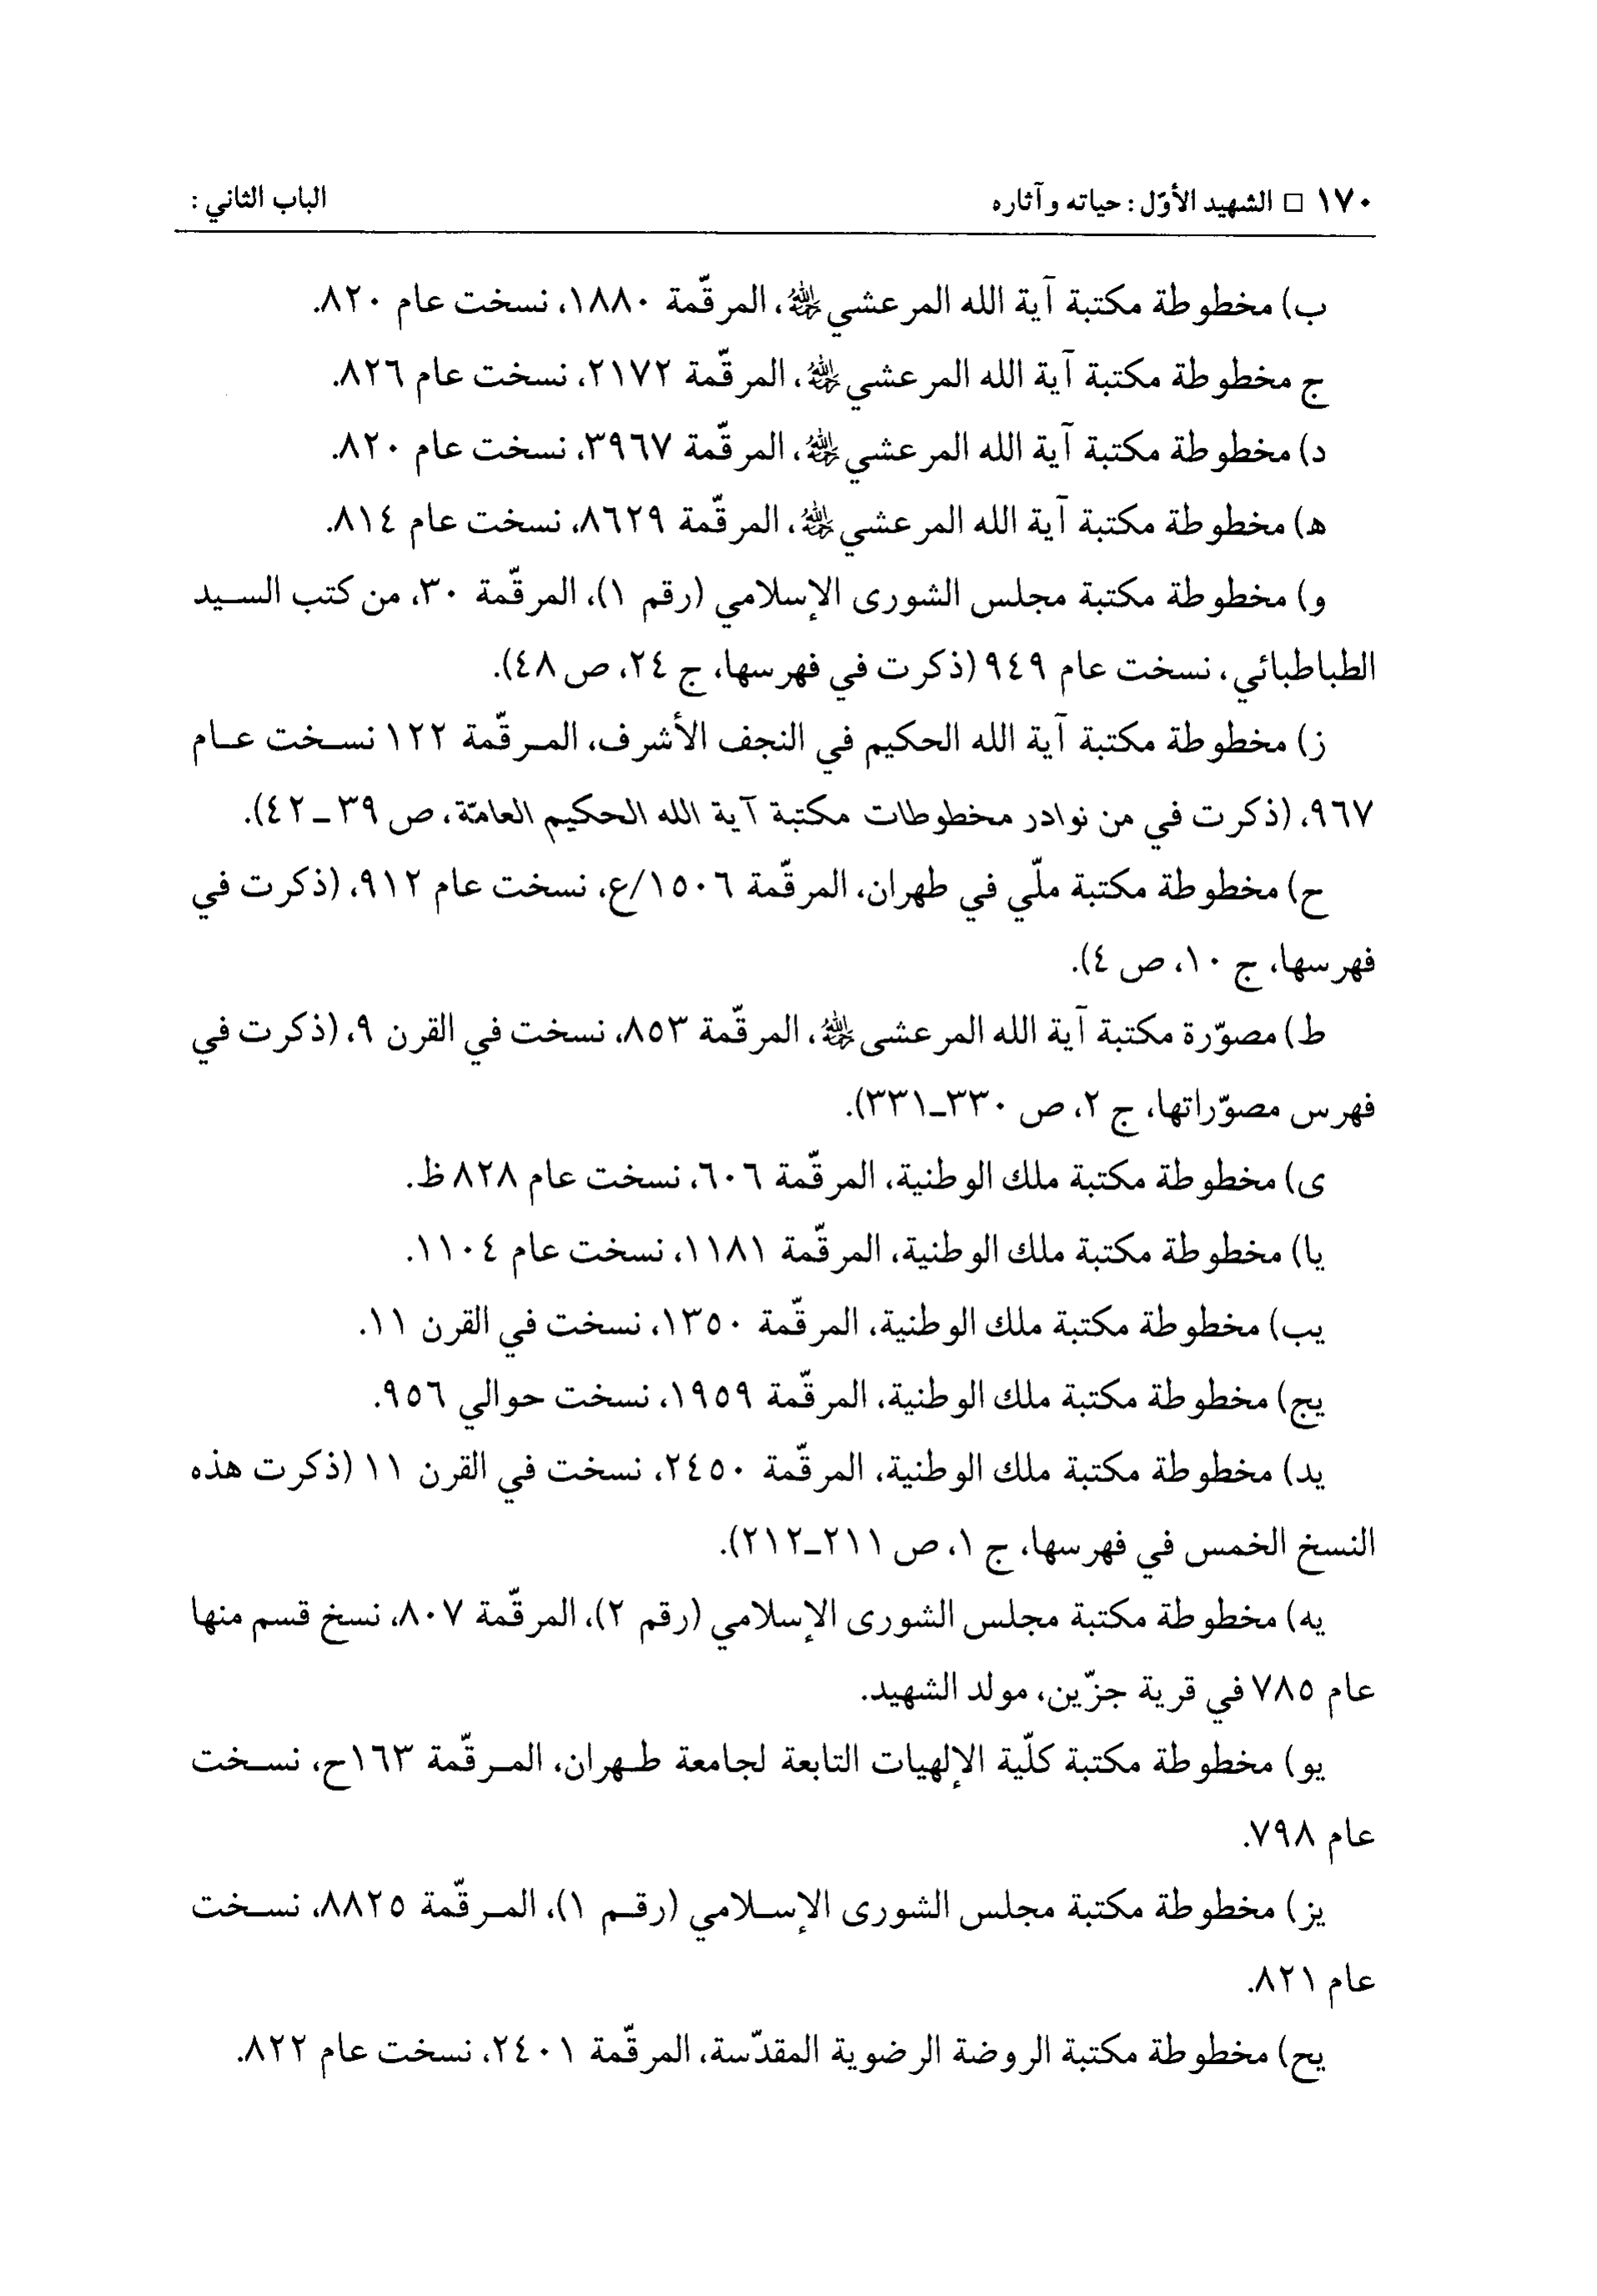 ١٧٠ □ الشهيد الأوّل : حياته وآثاره الباب الثاني :
ب) مخطوطة مكتبة آية الله المرعشيﷲ، المرقّمة ١٨٨٠، نسخت عام ٨٢٠.
ج مخطوطة مكتبة آية الله المرعشي، المرقّمة ٢١٧٢، نسخت عام ٨٢٦.
د) مخطوطة مكتبة آية الله المرعشي، المرقّمة ٣٩٦٧، نسخت عام ٨٢٠.
ه) مخطوطة مكتبة آية الله المرعشي، المرقّمة ٨٦٢٩، نسخت عام ٨١٤.
و) مخطوطة مكتبة مجلس الشورى الإسلامي (رقم ١)، المرقّمة ٣٠، من كتب السيد
الطباطبائي، نسخت عام ٩٤٩ (ذكرت في فهرسها، ج ٢٤، ص ٤٨).
ز) مخطوطة مكتبة آية الله الحكيم في النجف الأشرف، المرقّمة ١٢٢ نسخت عام
٩٦٧، (ذكرت في من نوادر مخطوطات مكتبة آية الله الحكيم العامّة، ص ٣٩ ـ ٤٢).
ح) مخطوطة مكتبة ملّي في طهران، المرقّمة ١٥٠٦/ع، نسخت عام ٩١٢، (ذكرت في
فهرسها، ج ١٠، ص ٤).
ط) مصوّرة مكتبة آية الله المرعشى، المرقّمة ٨٥٣، نسخت في القرن ٩، (ذكرت في
فهرس مصوّراتها، ج ٢، ص ٣٣٠ـ٣٣١).
ى) مخطوطة مكتبة ملك الوطنية، المرقّمة ٦٠٦، نسخت عام ٨٢٨ ظ.
يا) مخطوطة مكتبة ملك الوطنية، المرقّمة ١١٨١، نسخت عام ١١٠٤.
يب) مخطوطة مكتبة ملك الوطنية، المرقّمة ١٣٥٠، نسخت في القرن ١١.
يج) مخطوطة مكتبة ملك الوطنية، المرقّمة ١٩٥٩، نسخت حوالي ٩٥٦.
يد) مخطوطة مكتبة ملك الوطنية، المرقّمة ٢٤٥٠، نسخت في القرن ١١ (ذكرت هذه
النسخ الخمس في فهرسها، ج ١، ص ٢١١ـ٢١٢).
يه) مخطوطة مكتبة مجلس الشورى الإسلامي (رقم ٢)، المرقّمة ٨٠٧، نسخ قسم منها
عام ٧٨٥ في قرية جزّين، مولد الشهيد.
يو) مخطوطة مكتبة كلّية الإلهيات التابعة لجامعة طهران، المرقّمة ١٦٣ح، نسخت
عام ٧٩٨.
يز) مخطوطة مكتبة مجلس الشورى الإسلامي (رقم ١)، المرقّمة ٨٨٢٥، نسخت
عام ٨٢١.
يح) مخطوطة مكتبة الروضة الرضوية المقدّسة، المرقّمة ٢٤٠١، نسخت عام ٨٢٢.